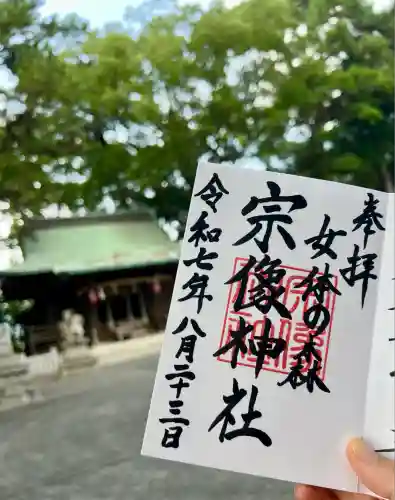 奉拝
女体の森
宗像神社
令和七年八月二十三日